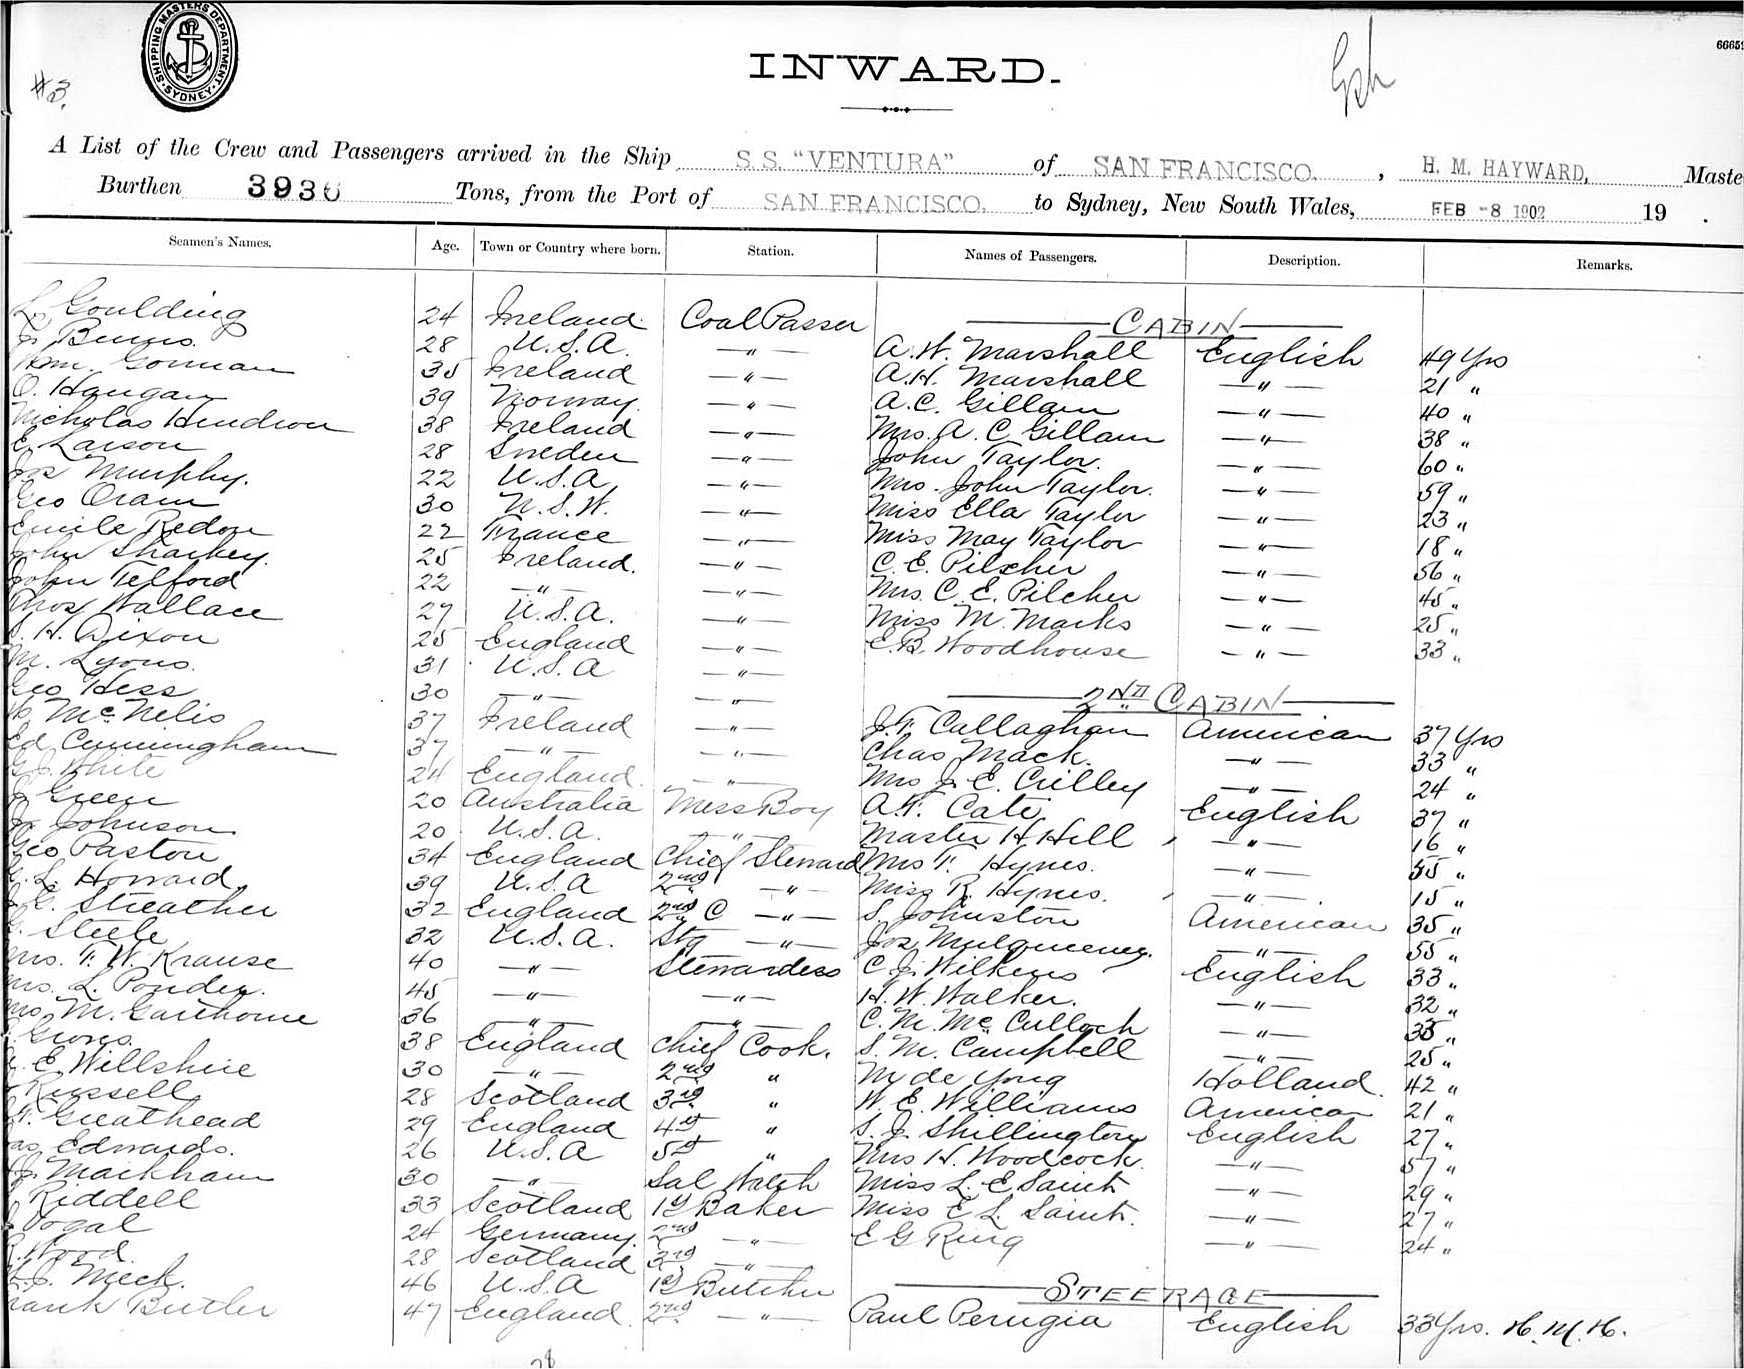 SHIPPING MASTERS DEPARTMENT. SYDNEY.
#3.
INWARD.
6665
A List of the Crew and Passengers arrived in the Ship S.S. "VENTURA" of SAN FRANCISCO. , H. M. HAYWARD, Maste
Burthen 3936 Tons, from the Port of SAN FRANCISCO. to Sydney, New South Wales, FEB -8 1902 19 .
Seamen's Names. Age. Town or Country where born. Station. Names of Passengers. Description. Remarks.
L. Goulding 24 Ireland Coal Passer CABIN
J. Burns. 28 U.S.A. " A. W. Marshall English 49 Yrs
Wm. Gorman 35 Ireland " A. H. Marshall " 21 "
O. Haugan 39 Norway " A. C. Gillam " 40 "
Nicholas Hendron 38 Ireland " Mrs. A. C. Gillam " 38 "
E. Larson 28 Sweden " John Taylor. " 60 "
Jos Murphy. 22 U.S.A " Mrs. John Taylor. " 59 "
Geo Oram 30 N.S.W. " Miss Ella Taylor " 23 "
Emile Redon 22 France " Miss May Taylor " 18 "
John Sharkey. 25 Ireland. " C. E. Pilcher " 56 "
John Telford 22 " " Mrs. C. E. Pilcher " 45 "
Thos Wallace 27 U.S.A. " Miss M. Marks " 25 "
S. H. Dixon 25 England " E. B. Woodhouse " 33 "
M. Lyons. 31 U.S.A "
Geo Hess 30 " " 2ND CABIN
McNelis 37 Ireland " J. F. Callaghan American 37 Yrs
Ed Cunningham 37 " " Chas Mack. " 33 "
G. J. White 24 England. " Mrs J. E. Crilley " 24 "
J. Green 20 Australia Mess Boy A. F. Cate English 37 "
J. Johnson 20 U.S.A. " Master H. Hill " 16 "
Geo Paston 34 England Chief Steward Mrs F. Hynes. " 55 "
L. Howard 39 U.S.A 2nd " Miss R. Hynes. " 15 "
Streather 32 England 2nd C " S. Johnston American 35 "
Steele 32 U.S.A. Stg " Jos Mulqueeney. " 55 "
Mrs. F. W. Krause 40 " Stewardess C. J. Wilkens English 33 "
Mrs. L. Ponder. 45 " " H. W. Walker. " 32 "
Mrs. M. Garthorne 36 " " C. M. McCulloch " 35 "
38 England Chief Cook. S. M. Campbell " 25 "
E. Willshire 30 " 2nd " M de Yong Holland. 42 "
Russell 28 Scotland 3rd " W. E. Williams American 21 "
F. Greathead 29 England 4th " S. J. Shillington English 27 "
as Edwards. 26 U.S.A 5th " Mrs H. Woodcock. " 57 "
J. Markham 30 " Sal Watch Miss L. E. Saint " 29 "
Riddell 33 Scotland 1st Baker Miss E. L. Saint. " 27 "
Vogal 24 Germany. 2nd " E G Ring " 24 "
Wood. 28 Scotland 3rd "
J. Meek. 46 U.S.A 1st Butcher STEERAGE
rank Butler 47 England. 2nd " Paul Perugia English 33 Yrs. H.M.H.